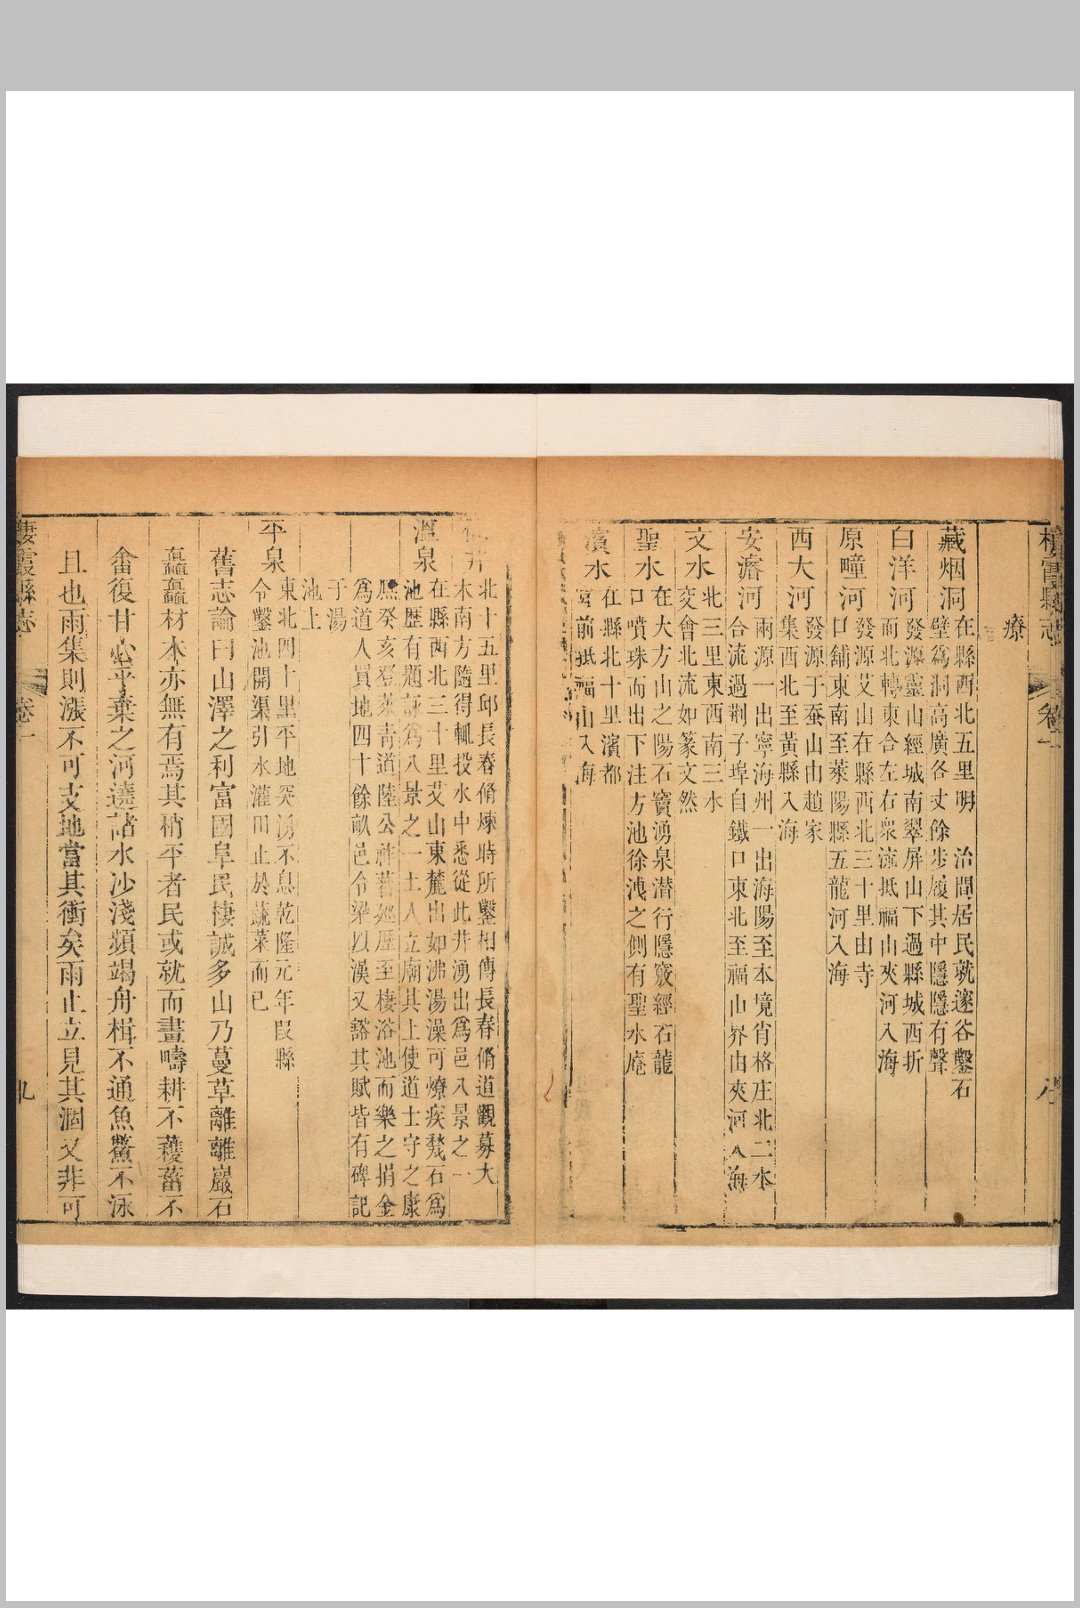 棲霞縣志
卷一
八
療
藏烟洞
在縣西北五里明 治間居民就邃谷鑿石
壁爲洞高廣各丈餘步履其中隱隱有聲
白洋河
發源靈山經城南翠屏山下過縣城西折
而北轉東合左右衆流抵福山夾河入海
原疃河
發源艾山在縣西北三十里由寺
口舖東南至萊陽縣五龍河入海
西大河
發源于蚕山由趙家
集西北至黃縣入海
安濬河
兩源一出寧海州一出海陽至本境肖格庄北二水
合流過荆子埠自鐵口東北至福山界由夾河入海
文水
北三里東西南三水
交會北流如篆文然
聖水
在大方山之陽石竇湧泉潜行隱竅經石龍
口噴珠而出下注方池徐洩之側有聖水庵
濱水
在縣北十里濱都
宮前抵福山入海
井
北十五里邱長春脩煉時所鑿相傳長春脩道觀募大
木南方隨得輒投水中悉從此井湧出爲邑八景之一
溫泉
在縣西北三十里艾山東麓出如沸湯澡可燎疾甃石爲
池歴有題詠爲八景之一土人立廟其上使道士守之康
熈癸亥登萊青道陸公祚蕃廵歴至棲浴池而樂之捐金
爲道人買地四十餘畝邑令梁以漢又谿其賦皆有碑記
于湯
池上
平泉
東北四十里平地突湧不息乾隆元年叚縣
令鑿池開渠引水灌田止於蔬菜而已
舊志論曰山澤之利富國阜民棲誠多山乃蔓草離離巖石
矗矗材木亦無有焉其稍平者民或就而畫疇耕不穫菑不
畬復甘心乎棄之河遶話水沙淺頻竭舟楫不通魚鱉不泳
且也雨集則漲不可支地當其衝矣雨止立見其涸又非可
棲霞縣志
卷一
九